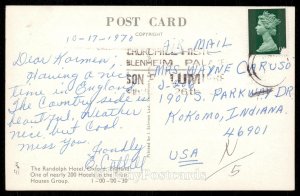 POST CARD
COPYRIGHT
10-17-1970
Dear Karmen,
Having a nice
time in England
The Country side is
beautiful, weather
nice, but Cool.
miss you.
Fondly
AIR MAIL
BLENHEIM PALACE
MRS WAYNE CARUSO
1901 S. PARKWAY DR
KOKOMO, INDIANA
46901
USA
N
5
The Randolph Hotel, Oxford, England
One of nearly 200 Hotels in the Trust
Houses Group. 1-00-00-39